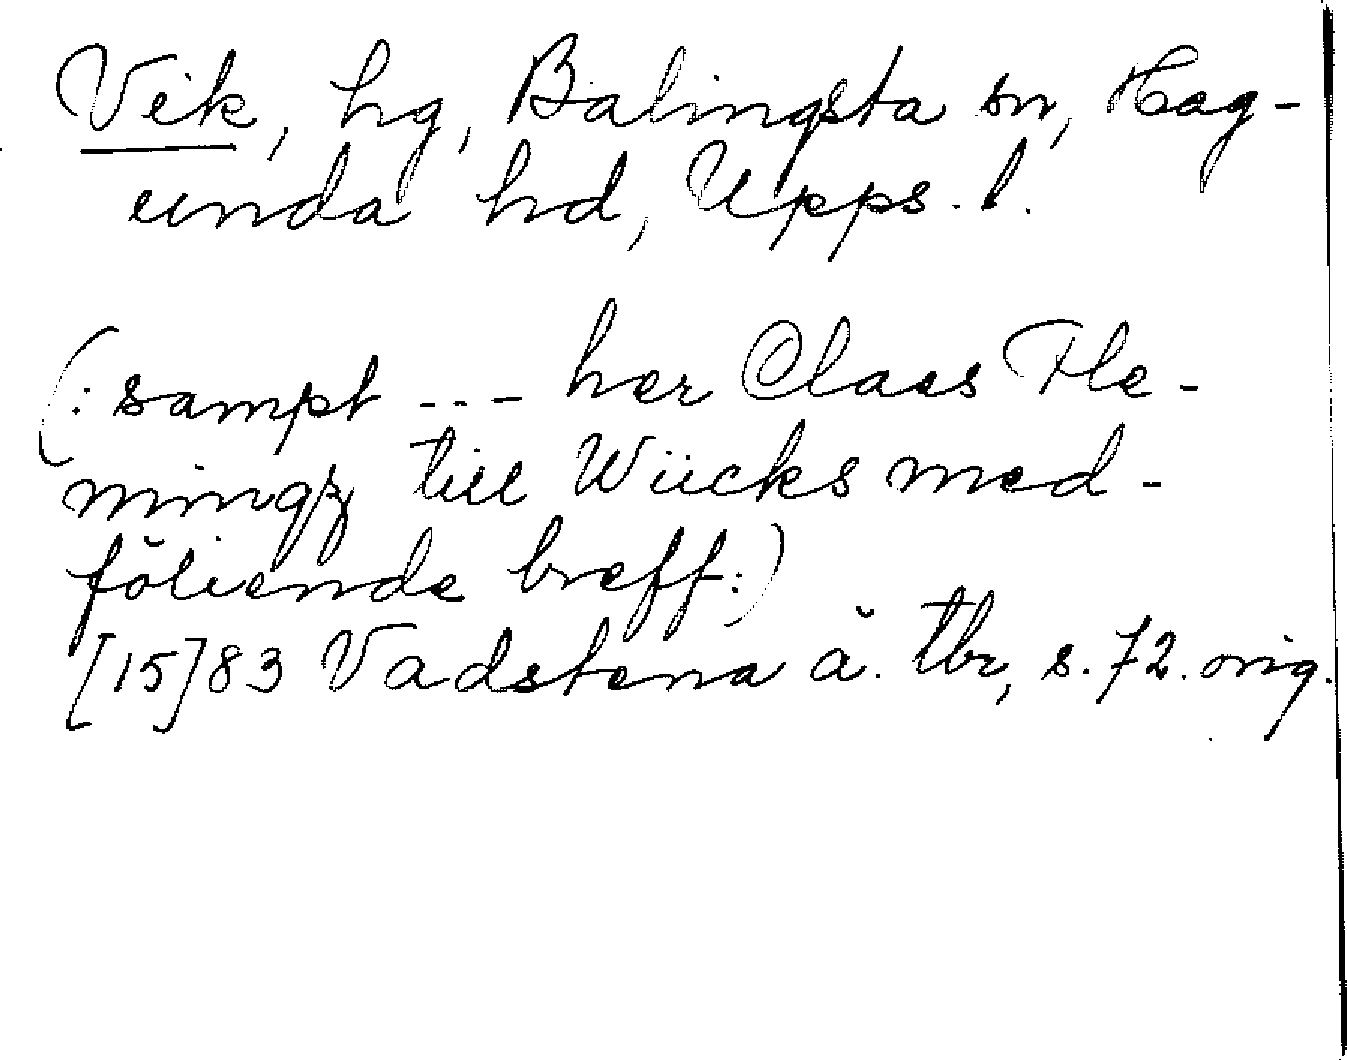 Vik, hg, Balingsta sn, Hag-
unda hd, Upps. l.
(: sampt --- her Claes Fle-
mingz till Wiicks med-
föliende breff :)
[15]83 Vadstena ä. tbr, s. 72. orig.